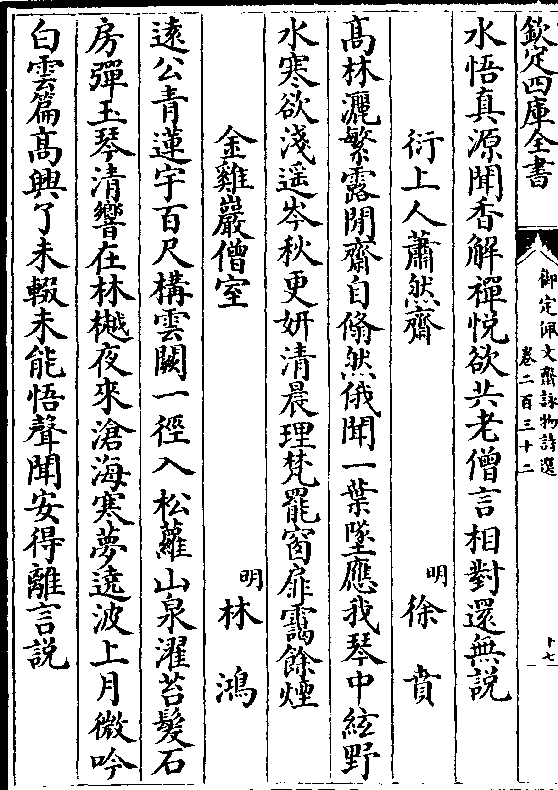 欽定四庫全書
御定佩文齋詠物詩選
卷二百三十二
十七
水悟真源聞香解禪悅欲共老僧言相對還無說
衍上人蕭然齋
明
徐賁
高林灑繁露閒齋自翛然俄聞一葉墜應我琴中絃野
水寒欲淺遥岑秋更妍清晨理梵罷窗扉靄餘煙
金雞巖僧室
明
林鴻
遠公青蓮宇百尺構雲闕一徑入松蘿山泉濯苔髮石
房彈玉琴清響在林樾夜來滄海寒夢遶波上月微吟
白雲篇高興了未輟未能悟聲聞安得離言説